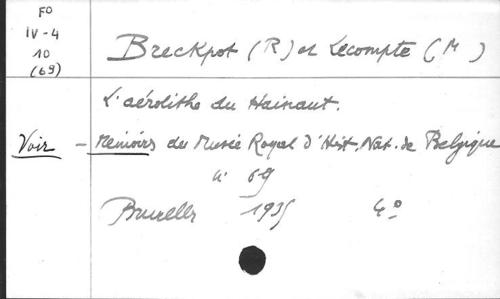 FO
IV-4
10
(69)
Breckpot (R) et Lecompte (M)
L'aérolithe du Hainaut.
Voir - Mémoires du Musée Royal d'Hist. Nat. de Belgique
n° 69
Bruxelles 1935 4°